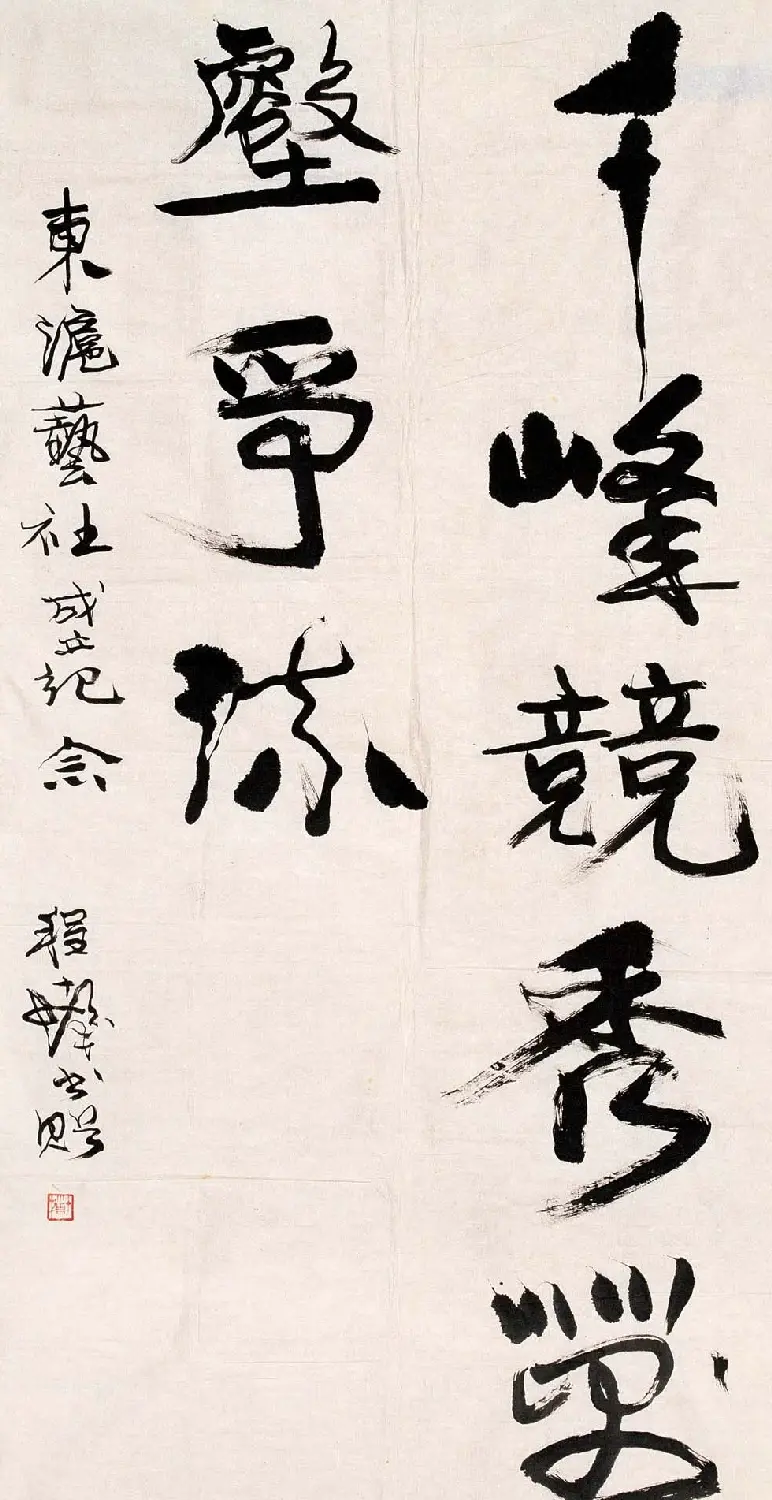 千峰競秀萬
壑爭流
東滬藝社成立紀念
程十髮書贈